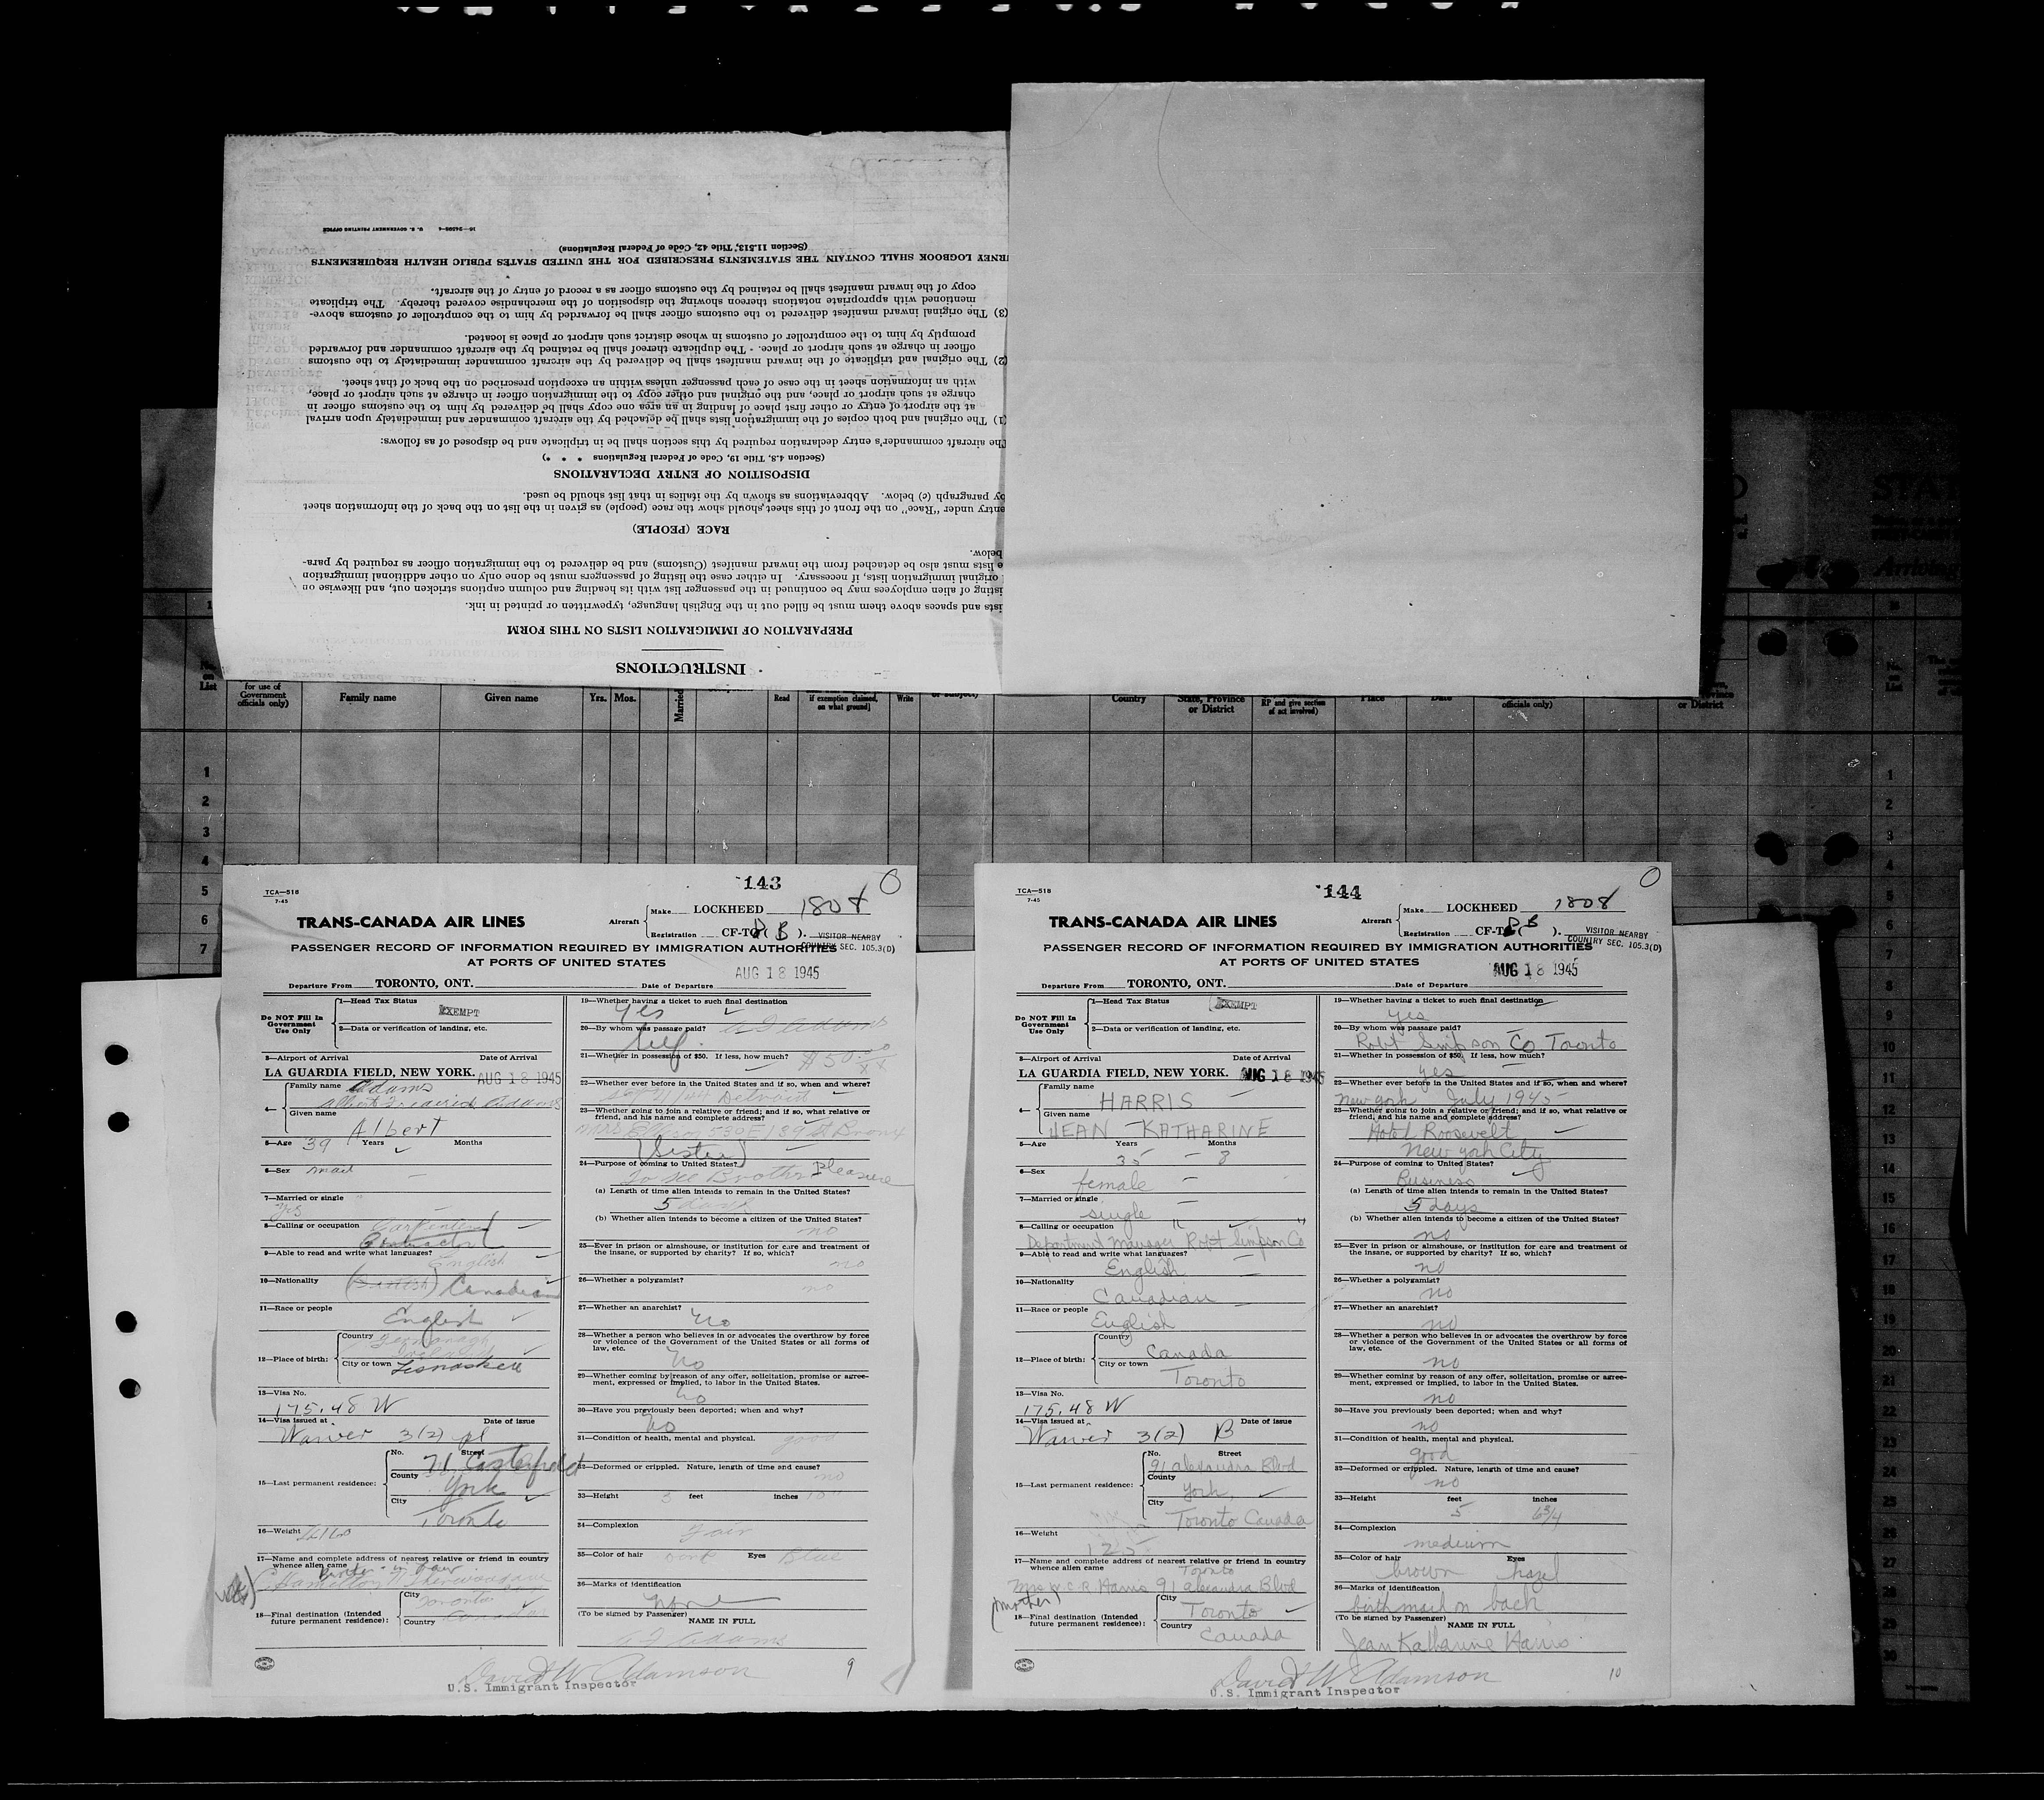 INSTRUCTIONS
PREPARATION OF IMMIGRATION LISTS ON THIS FORM
ists and spaces above them must be filled out in the English language, typewritten or printed in ink.
isting of alien employees may be continued in the passenger list with its heading and column captions stricken out, and likewise on
original immigration lists, if necessary. In either case the listing of passengers must be done only on other additional immigration
e lists must also be detached from the inward manifest (Customs) and be delivered to the immigration officer as required by para-
below.
RACE (PEOPLE)
entry under "Race" on the front of this sheet should show the race (people) as given in the list on the back of the information sheet
by paragraph (c) below. Abbreviations as shown by the italics in that list should be used.
DISPOSITION OF ENTRY DECLARATIONS
(Section 4.8, Title 19, Code of Federal Regulations * * *)
The aircraft commander's entry declaration required by this section shall be in triplicate and be disposed of as follows:
(1) The original and both copies of the immigration lists shall be detached by the aircraft commander and immediately upon arrival
at the airport of entry or other first place of landing in an area one copy shall be delivered by him to the customs officer in
charge at such airport or place, and the original and other copy to the immigration officer in charge at such airport or place,
with an information sheet in the case of each passenger unless within an exception prescribed on the back of that sheet.
(2) The original and triplicate of the inward manifest shall be delivered by the aircraft commander immediately to the customs
officer in charge at such airport or place. The duplicate thereof shall be retained by the aircraft commander and forwarded
promptly by him to the comptroller of customs in whose district such airport or place is located.
(3) The original inward manifest delivered to the customs officer shall be forwarded by him to the comptroller of customs above-
mentioned with appropriate notations thereon showing the disposition of the merchandise covered thereby. The triplicate
copy of the inward manifest shall be retained by the customs officer as a record of entry of the aircraft.
RNEY LOGBOOK SHALL CONTAIN THE STATEMENTS PRESCRIBED FOR THE UNITED STATES PUBLIC HEALTH REQUIREMENTS
(Section 11.513, Title 42, Code of Federal Regulations)
U. S. GOVERNMENT PRINTING OFFICE
No. on List
for use of Government officials only)
Family name
Given name
Yrs.
Mos.
Married
Read
if exemption claimed, on what ground]
Write
Country
State, Province or District
RP and give section of act involved)
Place
Date
officials only)
or District
1
2
3
4
5
6
7
143
TCA—518
7-45
TRANS-CANADA AIR LINES
Aircraft
Make LOCKHEED 1808
Registration CF-TC( B ).
VISITOR NEARBY
COUNTRY SEC. 105.3(D)
PASSENGER RECORD OF INFORMATION REQUIRED BY IMMIGRATION AUTHORITIES
AT PORTS OF UNITED STATES
AUG 18 1945
Departure From TORONTO, ONT. Date of Departure
Do NOT Fill In Government Use Only
1—Head Tax Status EXEMPT
2—Data or verification of landing, etc.
3—Airport of Arrival Date of Arrival
LA GUARDIA FIELD, NEW YORK. AUG 18 1945
4— Family name Adams
Given name Albert
5—Age 39 Years Months
6—Sex male
7—Married or single yes
8—Calling or occupation Carpenter
Contractor
9—Able to read and write what languages?
English
10—Nationality (British) Canadian
11—Race or people
English
12—Place of birth: Country Fermanagh
Ireland
City or town Lisnaskea
13—Visa No.
175.48 W
14—Visa issued at Date of issue
Waiver 3(2) pl
15—Last permanent residence: No. Street
71 Easterfield
County York
City Toronto
16—Weight 160
17—Name and complete address of nearest relative or friend in country
whence alien came
18—Final destination (Intended
future permanent residence):
City Toronto
Country Canada
19—Whether having a ticket to such final destination
Yes
20—By whom was passage paid? A F Adams
Self
21—Whether in possession of $50. If less, how much? $50
22—Whether ever before in the United States and if so, when and where?
Detroit
23—Whether going to join a relative or friend; and if so, what relative or
friend, and his name and complete address?
530 E 139 St Bronx
(Sister)
24—Purpose of coming to United States?
To see Brother Pleasure
(a) Length of time alien intends to remain in the United States?
5 days
(b) Whether alien intends to become a citizen of the United States?
no
25—Ever in prison or almshouse, or institution for care and treatment of
the insane, or supported by charity? If so, which?
no
26—Whether a polygamist?
no
27—Whether an anarchist?
No
28—Whether a person who believes in or advocates the overthrow by force
or violence of the Government of the United States or all forms of
law, etc.
No
29—Whether coming by reason of any offer, solicitation, promise or agree-
ment, expressed or implied, to labor in the United States.
No
30—Have you previously been deported; when and why?
No
31—Condition of health, mental and physical. good
32—Deformed or crippled. Nature, length of time and cause?
no
33—Height 5 feet 10 inches
34—Complexion
Fair
35—Color of hair dark Eyes Blue
36—Marks of identification
None
(To be signed by Passenger)
NAME IN FULL
A F Adams
David W. Adamson
U.S. Immigrant Inspector
9
144
TCA—518
7-45
TRANS-CANADA AIR LINES
Aircraft
Make LOCKHEED 1808
Registration CF-TC( B ).
VISITOR NEARBY
COUNTRY SEC. 105.3(D)
PASSENGER RECORD OF INFORMATION REQUIRED BY IMMIGRATION AUTHORITIES
AT PORTS OF UNITED STATES
AUG 18 1945
Departure From TORONTO, ONT. Date of Departure
Do NOT Fill In Government Use Only
1—Head Tax Status EXEMPT
2—Data or verification of landing, etc.
3—Airport of Arrival Date of Arrival
LA GUARDIA FIELD, NEW YORK. AUG 18 1945
4— Family name
HARRIS
Given name
JEAN KATHARINE
5—Age Years Months
35 - 8
6—Sex
female
7—Married or single
single
8—Calling or occupation
Department Manager Robt Simpson Co
9—Able to read and write what languages?
English
10—Nationality
Canadian
11—Race or people
English
12—Place of birth: Country
Canada
City or town
Toronto
13—Visa No.
175.48 W
14—Visa issued at Date of issue
Waiver 3(2) B
15—Last permanent residence: No. Street
91 alexandra Blvd
County
York
City
Toronto Canada
16—Weight
125
17—Name and complete address of nearest relative or friend in country
whence alien came Toronto
Mrs W. C. R. Harris 91 alexandra Blvd
(mother)
18—Final destination (Intended
future permanent residence):
City
Toronto
Country
Canada
19—Whether having a ticket to such final destination
yes
20—By whom was passage paid?
Robt Simpson Co Toronto
21—Whether in possession of $50. If less, how much?
yes
22—Whether ever before in the United States and if so, when and where?
New york July 1945
23—Whether going to join a relative or friend; and if so, what relative or
friend, and his name and complete address?
Hotel Roosevelt
New york City
24—Purpose of coming to United States?
Business
(a) Length of time alien intends to remain in the United States?
5 days
(b) Whether alien intends to become a citizen of the United States?
no
25—Ever in prison or almshouse, or institution for care and treatment of
the insane, or supported by charity? If so, which?
no
26—Whether a polygamist?
no
27—Whether an anarchist?
no
28—Whether a person who believes in or advocates the overthrow by force
or violence of the Government of the United States or all forms of
law, etc.
no
29—Whether coming by reason of any offer, solicitation, promise or agree-
ment, expressed or implied, to labor in the United States.
no
30—Have you previously been deported; when and why?
no
31—Condition of health, mental and physical.
good
32—Deformed or crippled. Nature, length of time and cause?
no
33—Height feet inches
5 6 3/4
34—Complexion
medium
35—Color of hair Eyes
brown hazel
36—Marks of identification
birthmark on back
(To be signed by Passenger)
NAME IN FULL
Jean Katharine Harris
David W. Adamson
U.S. Immigrant Inspector
10
1
2
3
4
5
6
7
8
9
10
11
12
13
14
15
16
17
18
19
20
21
22
23
24
25
26
27
28
29
30